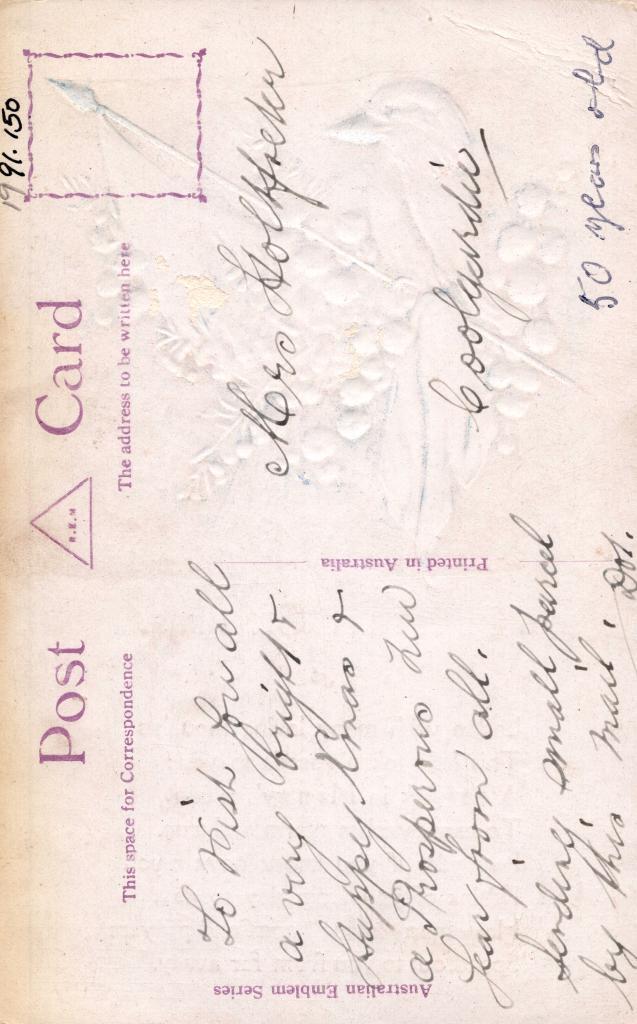 1991.150
Post Card
R.E.M
This space for Correspondence
The address to be written here
To Wish You all
a very bright &
Happy Xmas &
a Prosperous New
Year from all.
Sending small parcel
by this mail. Dot.
Mrs Holtfreter
Coolgardie
50 years old
Printed in Australia
Australian Emblem Series